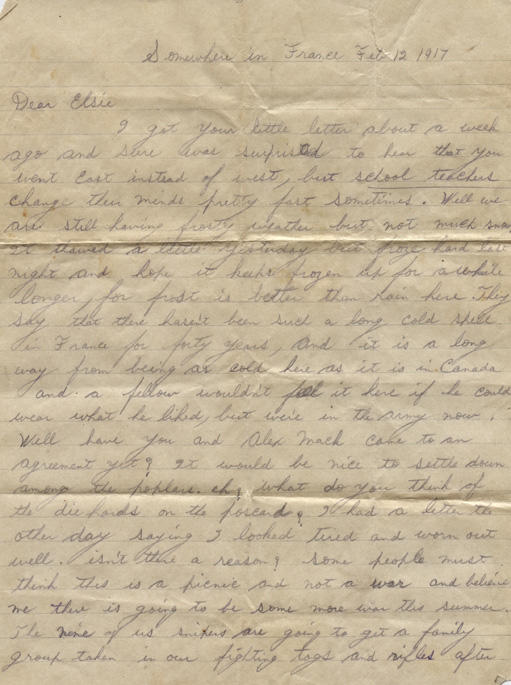 Somewhere in France Feb 12 1917
Dear Elsie
I got your little letter about a week
ago and sure was surprised to hear that you
went East instead of west, but school teachers
change their minds pretty fast sometimes. Well we
are still having frosty weather but not much snow
It thawed a little yesterday but froze hard last
night and hope it keeps frozen up for awhile
longer, for frost is better than rain here. They
say that there hasn't been such a long cold spell
in France for forty years, and it is a long
way from being as cold here as it is in Canada
and a fellow wouldn't feel it here if he could
wear what he liked, but we're in the army now.
Well have you and Alex Mack came to an
agreement yet? It would be nice to settle down
among the poplars. eh, what do you think of
the die hards on the poscard? I had a letter the
other day saying I looked tired and worn out
well. isn't there a reason? some people must
think this is a picnic and not a war and believe
me there is going to be some more war this summer.
The nine of us snipers are going to get a family
group taken in our fighting togs and rifles after